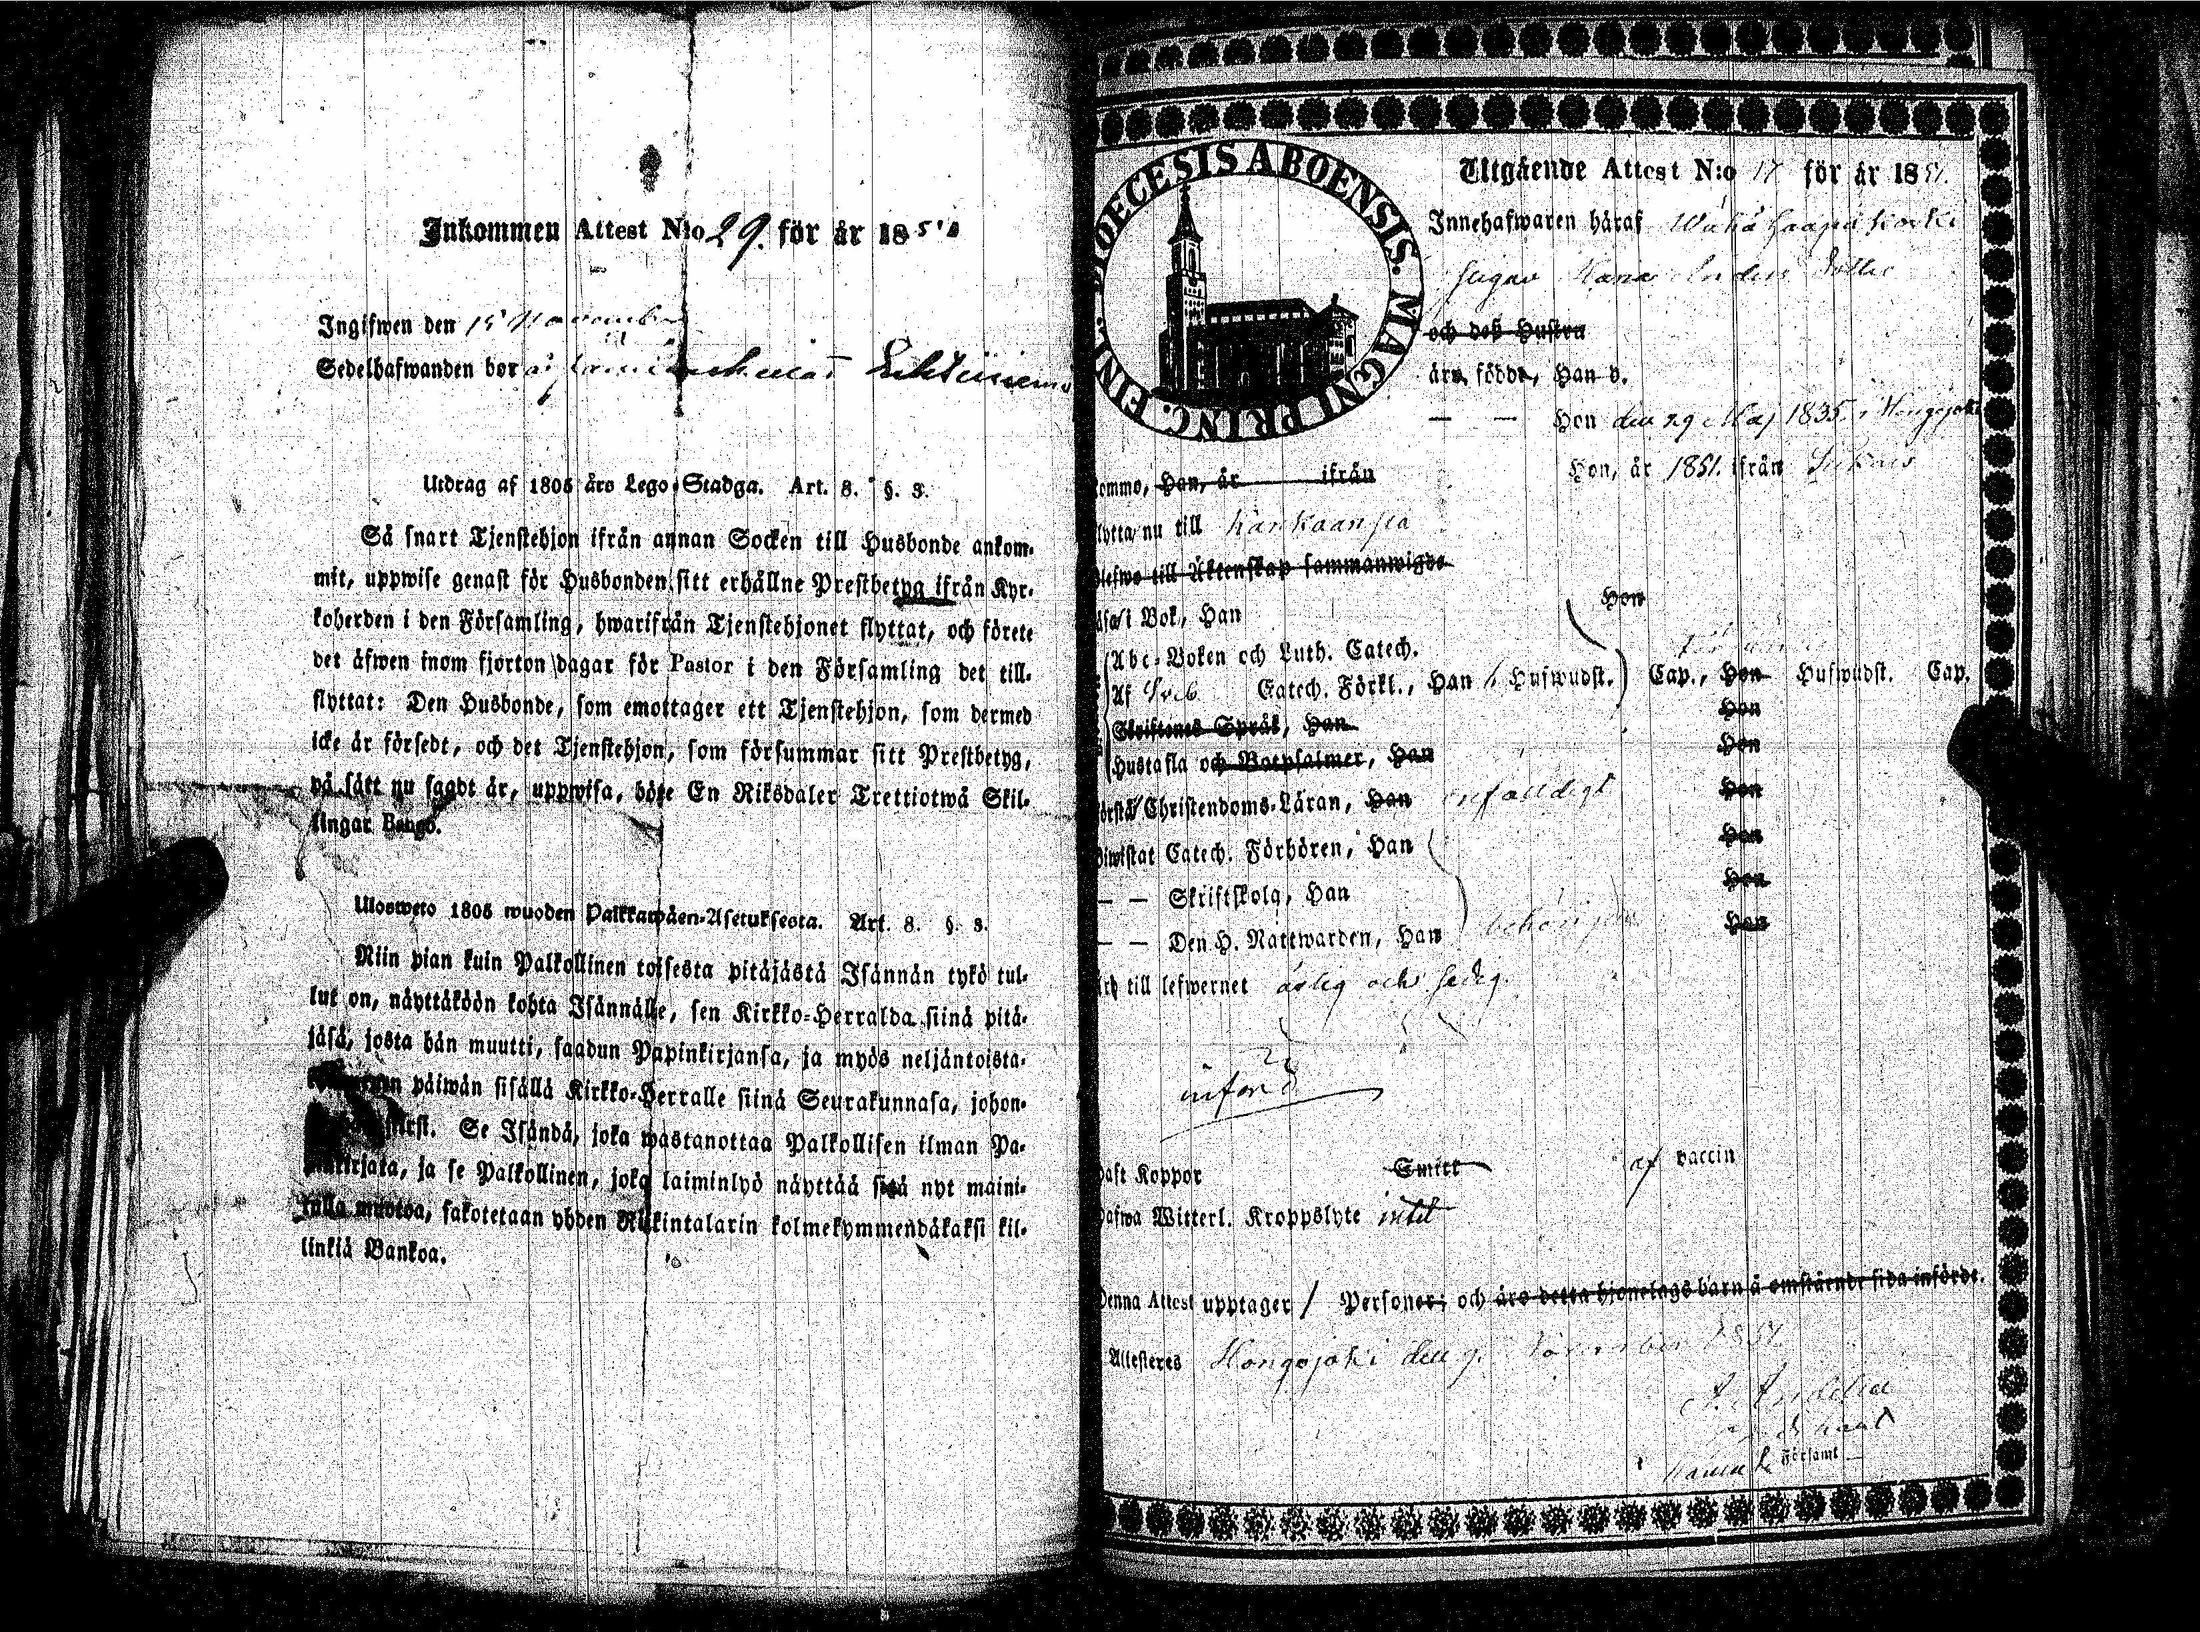 Inkommen Attest N:o 29. för år 1851
Ingifwen den 15 November
Sedelhafwanden bor
Utdrag af 1805 års Lego-Stadga. Art. 8. §. 3.
Så snart Tjenstehjon ifrån annan Socken till Husbonde ankom-
mit, uppwise genast för Husbonden sitt erhållne Prestbetyg ifrån Kyr-
koherden i den Församling, hwarifrån Tjenstehjonet flyttat, och förete
det äfwen inom fjorton dagar för Pastor i den Församling det till-
flyttat: Den Husbonde, som emottager ett Tjenstehjon, som dermed
icke är försedt, och det Tjenstehjon, som försummar sitt Prestbetyg,
på sätt nu sagdt är, uppwisa, böte En Riksdaler Trettiotwå Skil-
lingar Banco.
Ulosweto 1805 wuoden Palkkawäen-Asetuksesta. Art. 8. §. 3.
Niin pian kuin Palkollinen toisesta pitäjästä Isännän tykö tul-
lut on, näyttäköön kohta Isännälle, sen Kirkko-Herralda siinä pitä-
jäsä, josta hän muutti, saadun Papinkirjansa, ja myös neljäntoista-
päiwän sisällä Kirkko-Herralle siinä Seurakunnasa, johon-
Se Isändä, joka wastanottaa Palkollisen ilman Pa-
pinkirjata, ja se Palkollinen, joka laiminlyö näyttää sitä nyt maini-
tulla muotoa, sakotetaan yhden Riikintalarin kolmekymmendäkaksi kil-
linkiä Bankoa.
DIOECESIS ABOENSIS. MAGNI PRINC. FINL.
Utgående Attest N:o 17 för år 1851.
Innehafwaren häraf
pigan Kaisa
och deß Hustru
äro födde, Han d.
— — Hon den 29 Maj 1835 i Hongojoki
komme, Han, år ifrån Hon, år 1851. ifrån
flytta nu till Kankaanpä
Blefwo till Äktenskap sammanwigde
Hon
läsa i Bok, Han
Abc-Boken och Luth. Catech.
Af Sveb Catech. Förkl., Han Hufwudst. Cap., Hon Hufwudst. Cap.
Skriftenes Språk, Han Hon
Hustafla och Botpsalmer, Han Hon
Förstå Christendoms-Läran, Han enfaldigt Hon
biwistat Catech. Förhören, Han Hon
— — Skriftskola, Han Hon
— — Den H. Nattwarden, Han behörigen Hon
till lefwernet ärlig och sedig.
införd
haft Koppor Smitt af vaccin
hafwa Witterl. Kroppslyte intet
Denna Attest upptager 1 Personer; och äro detta hjonelags barn å omstående sida införde.
Attesteres Hongojoki den 9. November 1851.
Församl